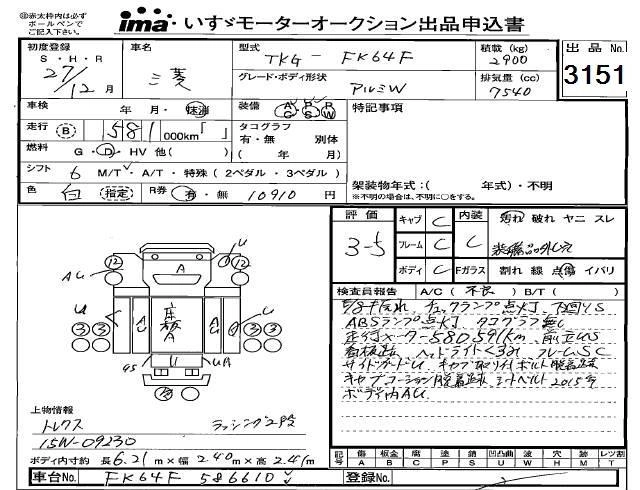 ㊟赤太枠内は必ず
ボールペンで
ご記入下さい。
ima いすゞモーターオークション出品申込書
初度登録
S・H・R
27/12月
車名
三菱
型式
TKG-FK64F
グレード・ボディ形状
アルミW
積載(kg)
2900
排気量(cc)
7540
出品No.
3151
車検 年 月・抹消
装備 A/C P/S P/W
特記事項
走行 B 581 000km「 」
タコグラフ
有・無 別体
( 年 月)
燃料 G・D・HV 他( )
シフト 6 M/T・A/T・特殊(2ペダル・3ペダル)
架装物年式:( 年式)・不明
※不明の場合は、不明に○をする。
色 白 (指定) R券 有・無 10910円
評価
3-5
キャブ C
フレーム C
ボディ C
内装
C
Fガラス
汚れ 破れ ヤニ スレ
装備品外し穴
割れ 線 点傷 イバリ
検査員報告 A/C(不良) B/T( )
チェックランプ点灯 下回りS
ABSランプ点灯 タコグラフ無し
走行メーター580,591km
ヘッドライトくすみ フレームSC
サイドガードU キャブ取り付ボルト脱着跡
シートベルト2015年
ボディ内AU
U
12
12
1
AU
A
U
3 3
AU
床板A
AU
U
3 3
U
UA
上物情報
トレクス
ラッシング2段
15W-09230
ボディ内寸約 長6.21m×幅2.40m×高2.41m
記号 傷A 板金B 腐C 塗P 錆S 凹凸曲U 波W 穴H 跡M レツ割T
車台No. FK64F 586610
登録No.